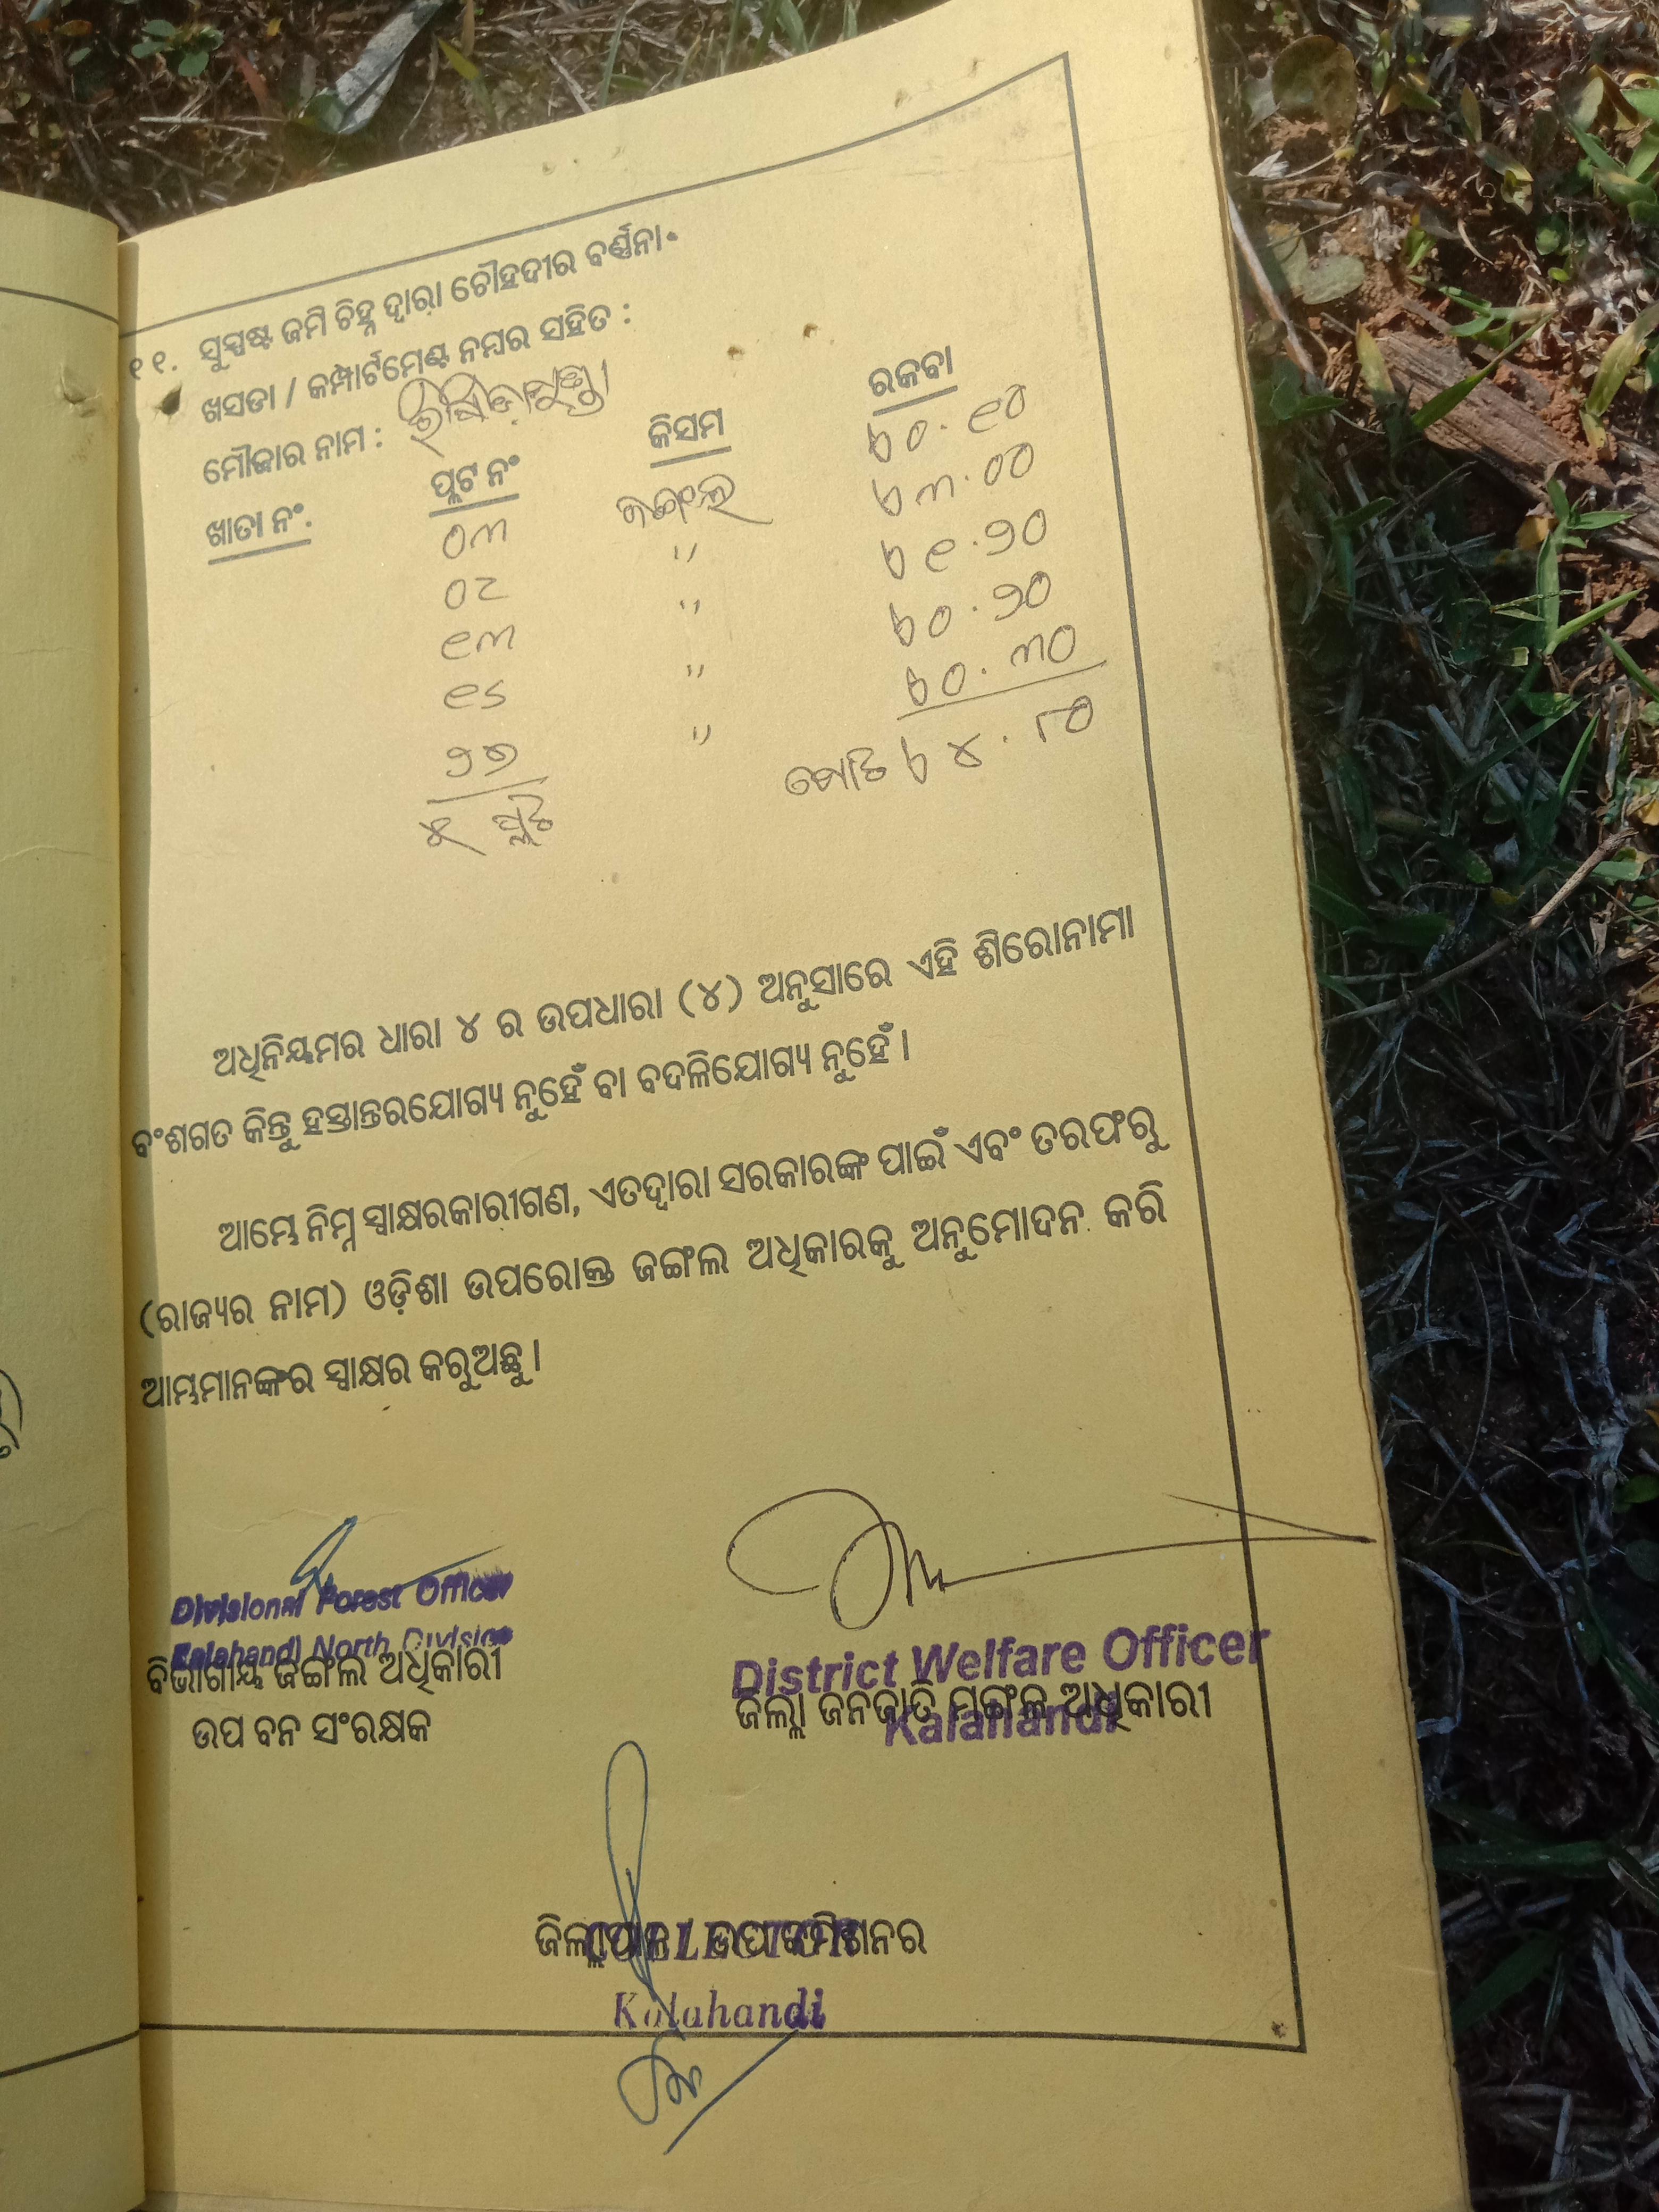 ୧୧. ସୁସ୍ପଷ୍ଟ ଜମି ଚିହ୍ନ ଦ୍ୱାରା ଚୌହଦୀର ବର୍ଣ୍ଣନା
ଖସଡା / କମ୍ପାର୍ଟମେଣ୍ଟ ନମ୍ବର ସହିତ :
ମୌଜାର ନାମ :
ଖାତା ନଂ. ପ୍ଲଟ ନଂ କିସମ ରକବା
୦୩ ଜଙ୍ଗଲ ୦.୧୦
୦୮ " ୩.୦୦
୧୩ " ୧.୨୦
୧୫ " ୦.୨୦
୨୭ " ୦.୩୦
୫ ପ୍ଲଟ ମୋଟ ୪.୮୦
ଅଧିନିୟମର ଧାରା ୪ ର ଉପଧାରା (୪) ଅନୁସାରେ ଏହି ଶିରୋନାମା
ବଂଶଗତ କିନ୍ତୁ ହସ୍ତାନ୍ତରଯୋଗ୍ୟ ନୁହେଁ ବା ବଦଳିଯୋଗ୍ୟ ନୁହେଁ ।
ଆମ୍ଭେ ନିମ୍ନ ସ୍ୱାକ୍ଷରକାରୀଗଣ, ଏତଦ୍ୱାରା ସରକାରଙ୍କ ପାଇଁ ଏବଂ ତରଫରୁ
(ରାଜ୍ୟର ନାମ) ଓଡ଼ିଶା ଉପରୋକ୍ତ ଜଙ୍ଗଲ ଅଧିକାରକୁ ଅନୁମୋଦନ କରି
ଆମ୍ଭମାନଙ୍କର ସ୍ୱାକ୍ଷର କରୁଅଛୁ ।
Divisional Forest Officer
Kalahandi North Division
ବିଭାଗୀୟ ଜଙ୍ଗଲ ଅଧିକାରୀ
ଉପ ବନ ସଂରକ୍ଷକ
District Welfare Officer
ଜିଲ୍ଲା ଜନଜାତି ମଙ୍ଗଳ ଅଧିକାରୀ
Kalahandi
ଜିଲ୍ଲାପାଳ / ଉପ କମିଶନର
Kalahandi